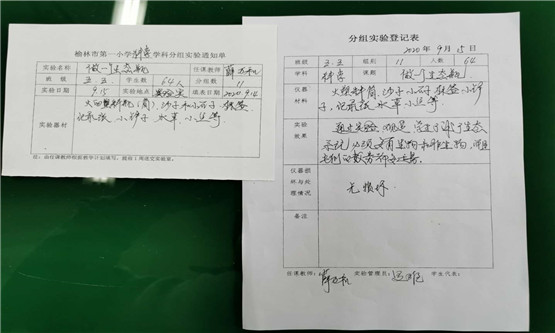 榆林市第一小学科学学科分组实验通知单
实验名称 做一个生态瓶 任课教师 薛
班级 五.五 学生数 64人 分组数 11
实验日期 9.15 实验地点 实验室 报表日期 2020.9.14
实验器材 大的塑料瓶(筒)、沙子和小石子、标签
记录纸、小铲子 水草、小鱼等
注:由任课教师根据教学计划填写,提前1周送交实验室。
分组实验登记表
2020年9月15日
班级 五.五 组别 11 人数 64
学科 科学 课题 做一个生态瓶
仪器材料 大塑料筒、沙子、小石子、标签、小铲子、
记录纸、水草、小鱼等
实验效果 通过实验、观察 学生了解了生态
系统必须要有生物和非生物,
仪器损坏与处理情况 无损坏
备注
任课教师: 薛 实验管理员: 学生代表: